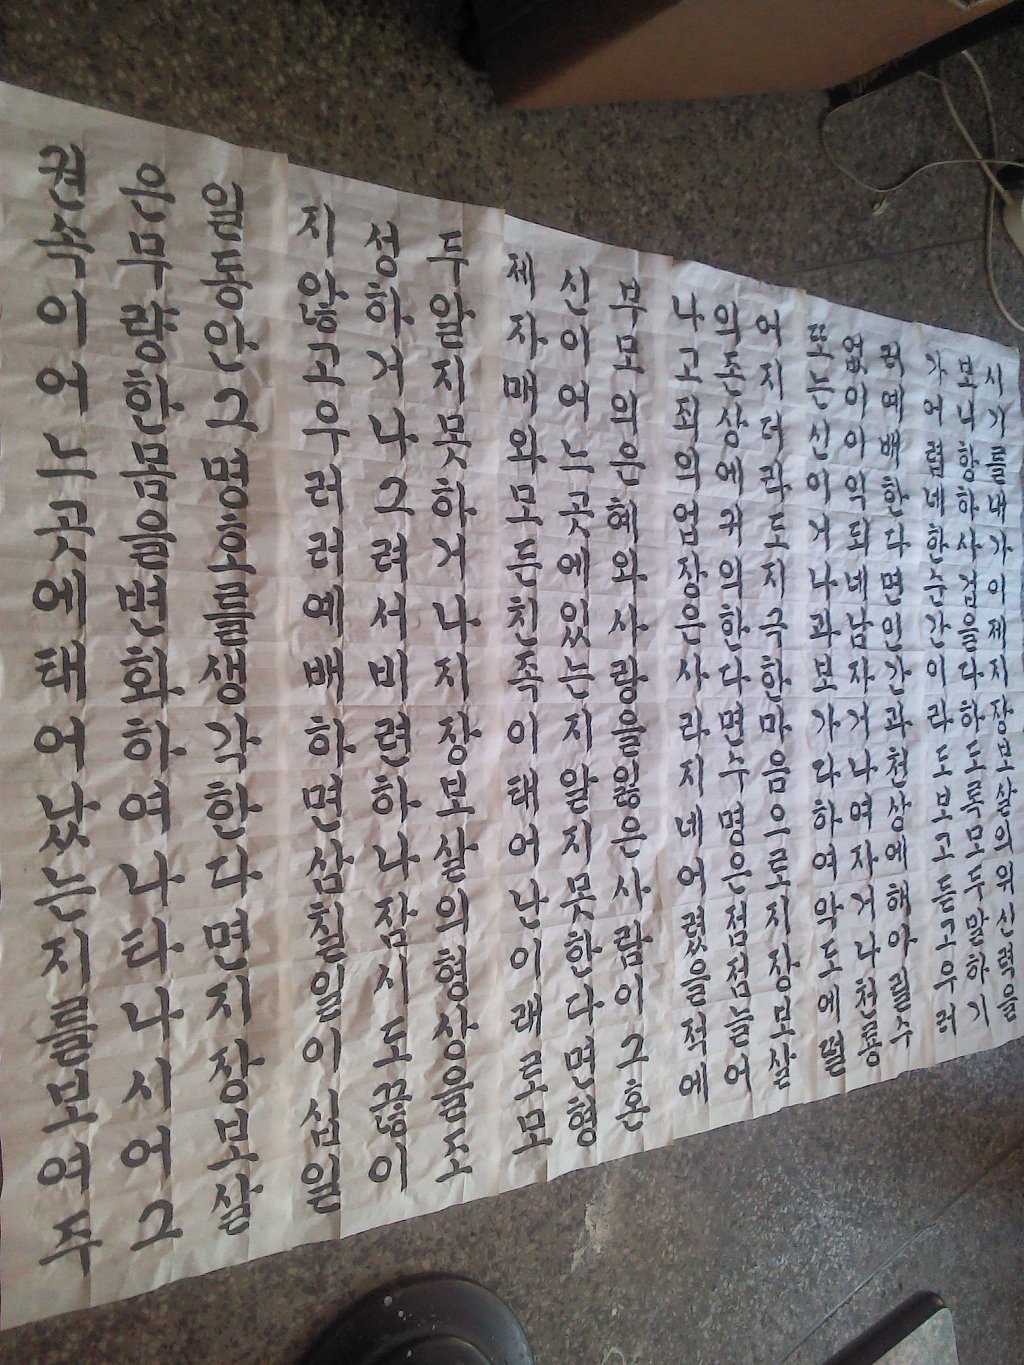 시기를내가이제지장보살의위신력을
보니항하사겁을다하도록모두말하기
가어렵네한순간이라도보고듣고우러
러예배한다면인간과천상에헤아릴수
없이이익되네남자거나여자거나천룡
또는신이거나과보가다하여악도에떨
어지더라도지극한마음으로지장보살
의존상에귀의한다면수명은점점늘어
나고죄의업장은사라지네어렸을적에
부모의은혜와사랑을잃은사람이그혼
신이어느곳에있는지알지못한다면형
제자매와모든친족이태어난이래로모
두알지못하거나지장보살의형상을조
성하거나그려서비련하나잠시도끊이
지않고우러러예배하면삼칠일이십일
일동안그명호를생각한다면지장보살
은무량한몸을변화하여나타나시어그
권속이어느곳에태어났는지를보여주